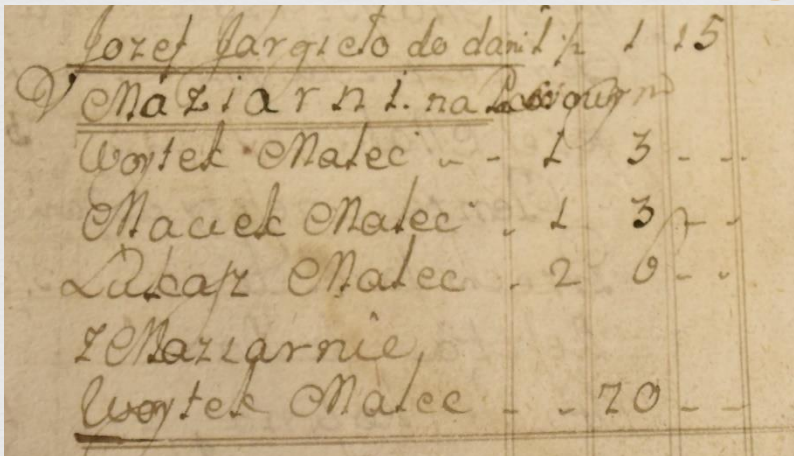 Jozef Jargieło do dani 1 1/2 1 15
V Maziarni. na
Woytek Malec - - 1 3 - -
Maciek Malec - 1 3 - -
Lukasz Malec - 2 6 - -
z Maziarnie
Woytek Malec - - 20 - -